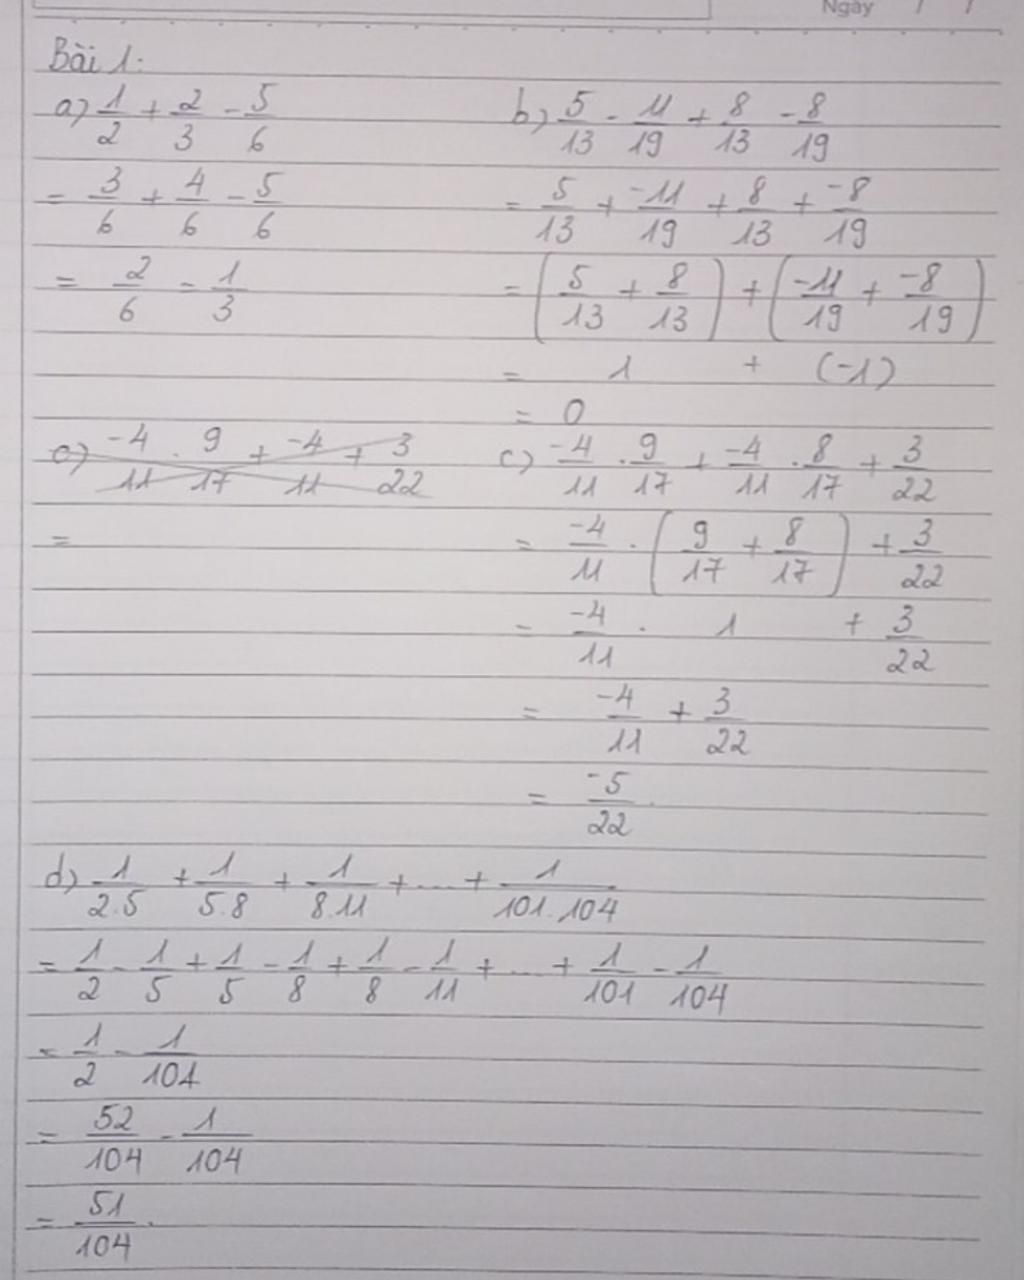 Ngày / /
Bài 1:
a) 1/2 + 2/3 - 5/6
= 3/6 + 4/6 - 5/6
= 2/6 = 1/3
b) 5/13 - 11/19 + 8/13 - 8/19
= 5/13 + -11/19 + 8/13 + -8/19
= (5/13 + 8/13) + (-11/19 + -8/19)
= 1 + (-1)
= 0
c) -4/11 . 9/17 + -4/11 + 3/22
=
c) -4/11 . 9/17 + -4/11 . 8/17 + 3/22
= -4/11 . (9/17 + 8/17) + 3/22
= -4/11 . 1 + 3/22
= -4/11 + 3/22
= -5/22.
d) 1/2.5 + 1/5.8 + 1/8.11 + .... + 1/101.104
= 1/2 - 1/5 + 1/5 - 1/8 + 1/8 - 1/11 + ... + 1/101 - 1/104
= 1/2 - 1/104
= 52/104 - 1/104
= 51/104.